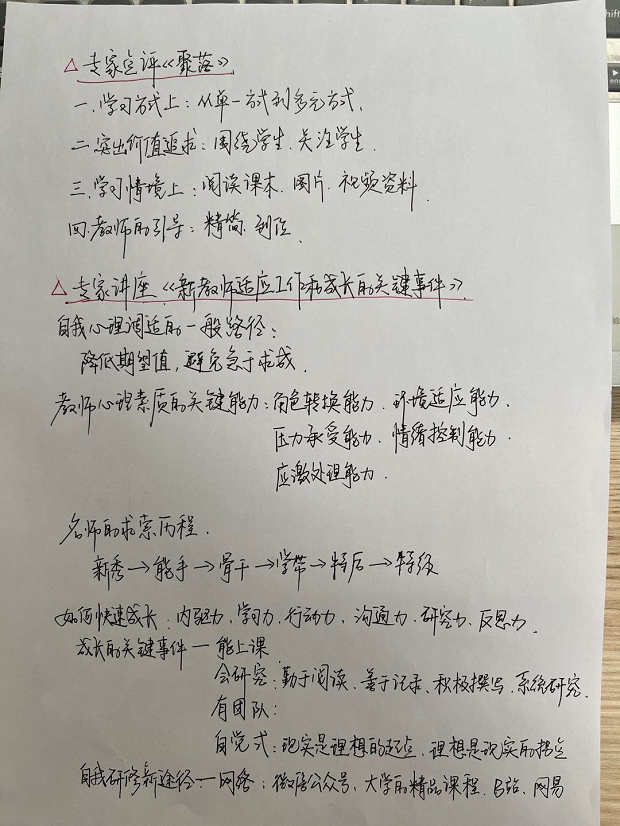 △ 专家点评《聚落》
一.学习方式上：从单一方式到多元方式.
二.突出价值追求：围绕学生.关注学生.
三.学习情境上：阅读课本.图片.视频资料.
四.教师的引导：精简.到位.
△ 专家讲座《新教师适应工作和成长的关键事件》
自我心理调适的一般路径：
降低期望值，避免急于求成.
教师心理素质的关键能力：角色转换能力.环境适应能力.
压力承受能力.情绪控制能力.
应激处理能力.
名师的求索历程.
新秀→能手→骨干→学带→特后→特级
如何快速成长：内驱力.学习力.行动力.沟通力.研究力.反思力.
成长的关键事件一能上课
会研究：勤于阅读、善于记录、积极撰写.系统研究.
有团队：
自觉式：现实是理想的起点，理想是现实的
自我研修新途径：一网络：微信公众号、大学的精品课程.B站、网易
shift